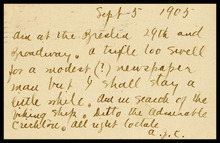 Sept 5 1905
am at the Breslin 29th and
Broadway. a trifle too swell
for a modest (?) newspaper
man but I shall stay a
little while. Am in search of the
viking ship. Ditto the Admirable
Crichton. All right to date
a.J.C.